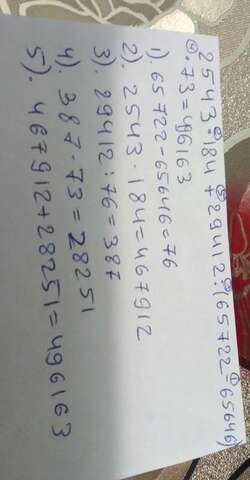 2543·184+29412:(65722-65646)
·73=496163
1). 65722-65646=76
2). 2543·184=467912
3). 29412:76=387
4). 387·73=28251
5). 467912+28251=496163